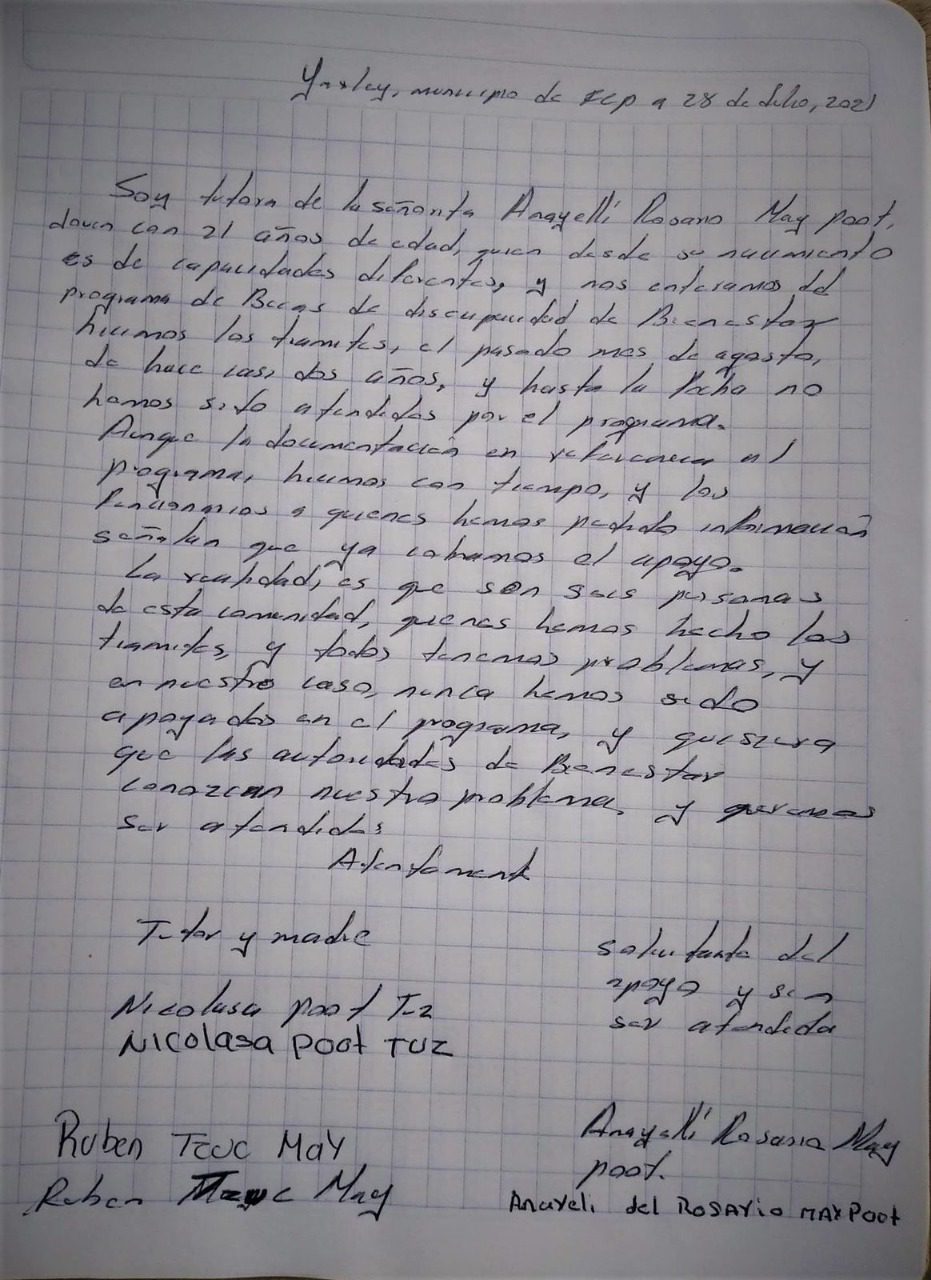 Yaxley, municipio de FCP a 28 de Julio, 2021
Soy tutora de la señorita Anayellí Rosario May poot,
joven con 21 años de edad, quien desde su nacimiento
es de capacidades diferentes, y nos enteramos del
programa de Becas de discapacidad de Bienestar
hicimos los tramites, el pasado mes de agosto,
de hace casi dos años, y hasta la fecha no
hemos sido atendidos por el programa.
Aunque la documentación en referencia al
programa, hicimos con tiempo, y los
funcionarios a quienes hemos pedido información
señalan que ya cobramos el apoyo.
La realidad, es que son seis personas
de esta comunidad, quienes hemos hecho los
tramites, y todos tenemos problemas, y
en nuestro caso, nunca hemos sido
apoyados en el programa, y quisiera
que las autoridades de Bienestar
conozcan nuestro problema, y queremos
ser atendidos
Atentamente
Tutor y madre
Nicolasa poot Tuz
NICOLASA POOT TUZ
solicitante del
apoyo y sin
ser atendida
Ruben Tzuc MAY
Ruben Tzuc May
Anayellí Rosario May
poot.
Anayeli del ROSARIO MAY POOT